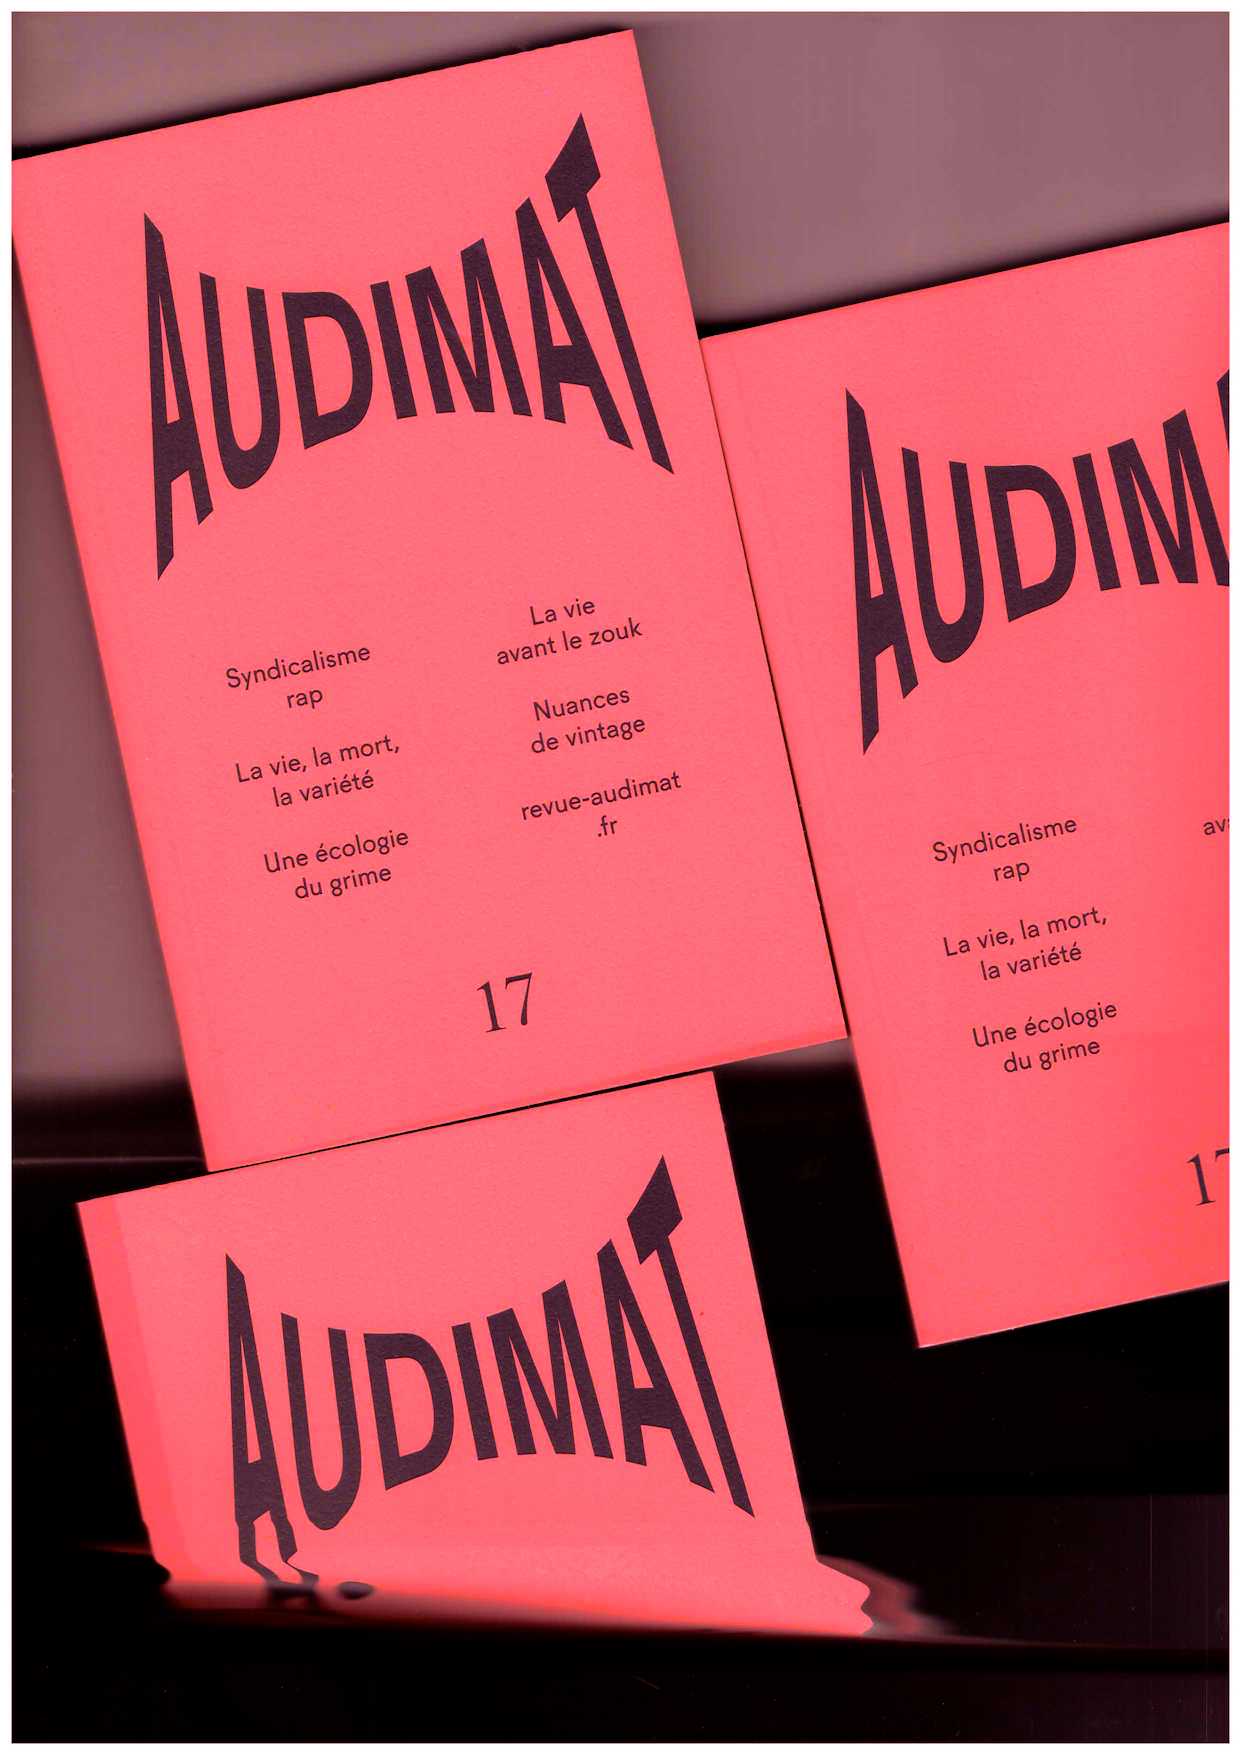 AUDIMAT
Syndicalisme
rap
La vie, la mort,
la variété
Une écologie
du grime
La vie
avant le zouk
Nuances
de vintage
revue-audimat
.fr
17
AUDIM
Syndicalisme
rap
La vie, la mort,
la variété
Une écologie
du grime
17
AUDIMAT